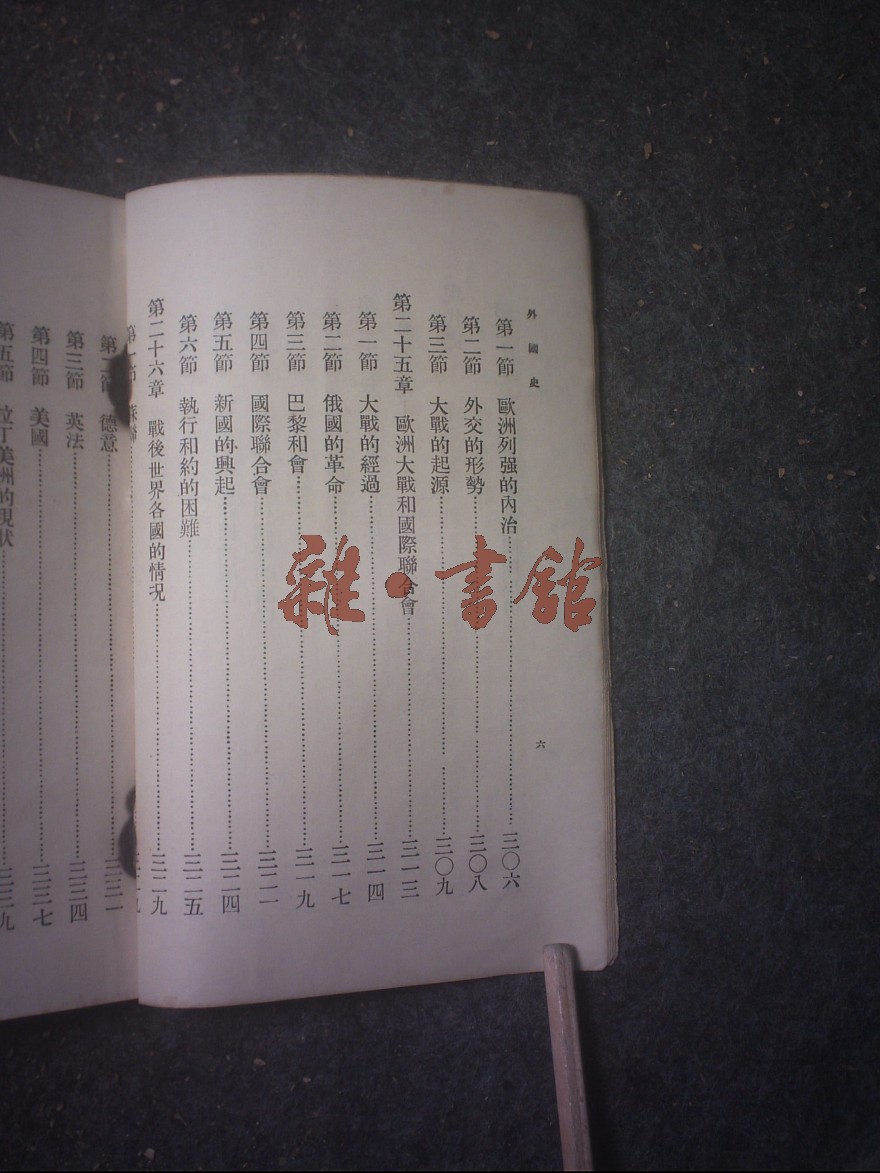 外國史
第一節　歐洲列强的內治……三〇六
第二節　外交的形勢……三〇八
第三節　大戰的起源……三〇九
第二十五章　歐洲大戰和國際聯合會……三一三
第一節　大戰的經過……三一四
第二節　俄國的革命……三一七
第三節　巴黎和會……三一九
第四節　國際聯合會……三二一
第五節　新國的興起……三二四
第六節　執行和約的困難……三二五
第二十六章　戰後世界各國的情况……三二九
第一節　蘇聯……三二九
第二節　德意……三三一
第三節　英法……三三四
第四節　美國……三三七
第五節　拉丁美洲的現狀……三三九
六
雜·書館